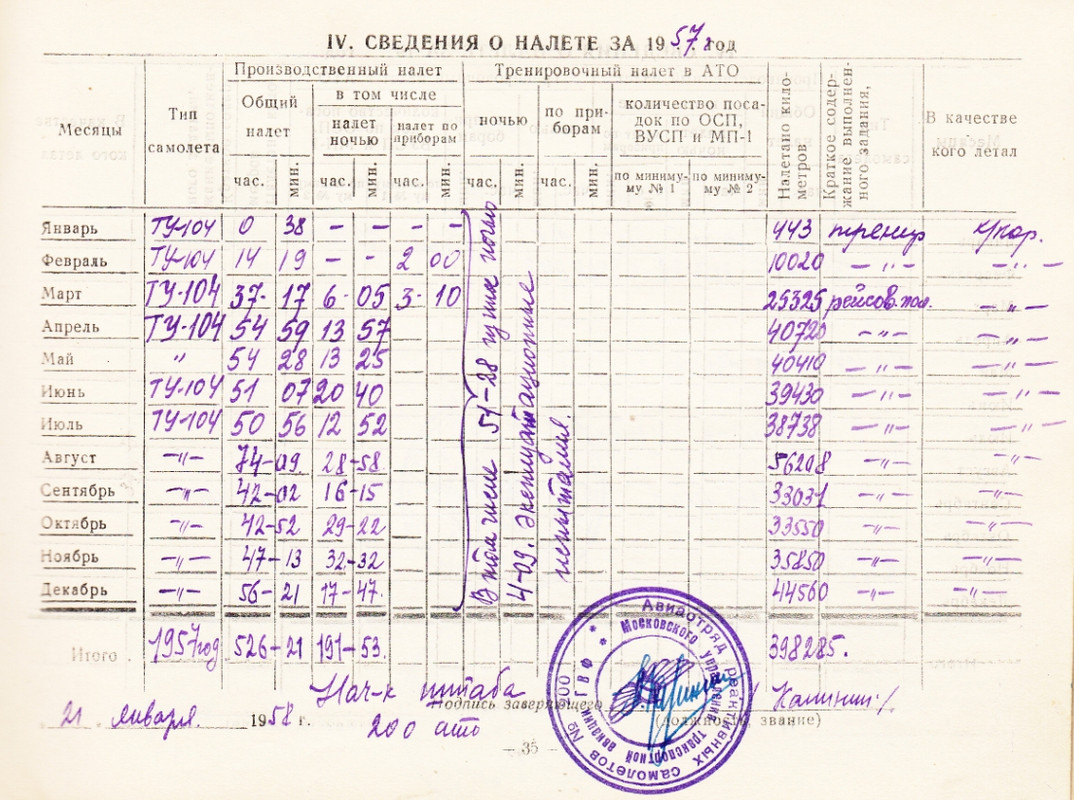 IV. СВЕДЕНИЯ О НАЛЕТЕ ЗА 1957 год
Месяцы
Тип самолета
Производственный налет
Общий налет
в том числе
налет ночью
налет по приборам
Тренировочный налет в АТО
ночью
по приборам
количество посадок по ОСП, ВУСП и МП-1
по минимуму № 1
по минимуму № 2
Налетано километров
Краткое содержание выполненного задания,
В качестве кого летал
час. мин. час. мин. час. мин. час. мин. час. мин.
Январь ТУ-104 0 38 – – – – 443 тренир к/кор.
Февраль ТУ-104 14 19 – – 2 00 10020 –"– –"–
Март ТУ-104 37-17 6-05 3-10 25325 рейсов. пол. –"–
Апрель ТУ-104 54 59 13 57 40720 –"– –"–
Май " 54 28 13 25 40410 –"– –"–
Июнь ТУ-104 51 07 20 40 39430 –"– –"–
Июль ТУ-104 50 56 12 52 38738 –"– –"–
Август –"– 74-09 28-58 56208 –"– –"–
Сентябрь –"– 42-02 16-15 33031 –"– –"–
Октябрь –"– 42-52 29-22 33550 –"– –"–
Ноябрь –"– 47-13 32-32 35850 –"– –"–
Декабрь –"– 56-21 17-47 44560 –"– –"–
В том числе 51-28 ночью
4-09. Эксплуатационные
испытания.
Итого 1957 год 526-21 191-53. 398285.
Нач-к штаба
200 ато
Подпись заверяющего
Калинин
(должность, звание)
21 января 1958 г.
Авиаотряд реактивных самолетов № 200
Московского управления транспортной авиации ГВФ
– 35 –